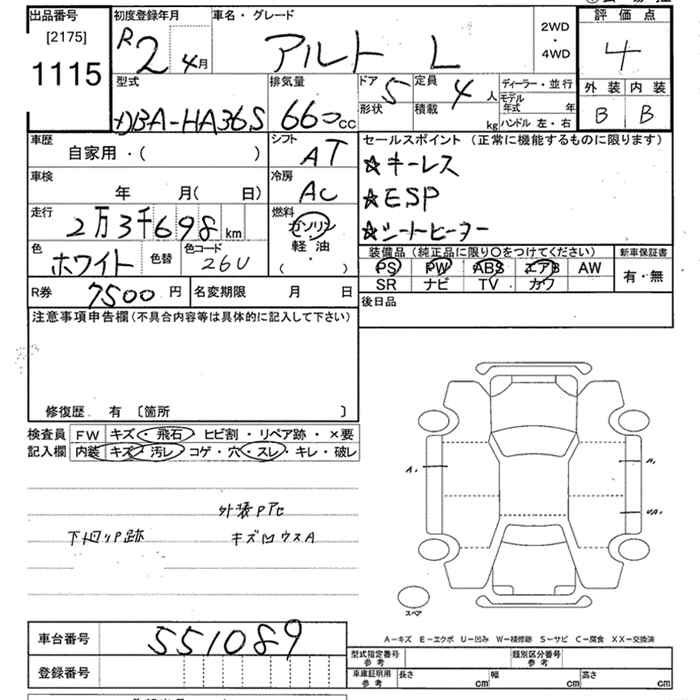 出品番号
[2175]
1115
初度登録年月
R2 4月
車名・グレード
アルト L
2WD
・
4WD
評価点
4
外装 内装
B B
型式
DBA-HA36S
排気量
660cc
ドア 5
定員 4人
形状
積載 kg
ディーラー・並行
モデル年式 年
ハンドル 左・右
車歴
自家用・( )
シフト
AT
車検
年 月( 日)
冷房
AC
走行
2万3千698km
燃料
ガソリン
軽油
( )
色
ホワイト
色替
色コード
26U
セールスポイント (正常に機能するものに限ります)
☆キーレス
☆ESP
☆シートヒーター
装備品(純正品に限り〇をつけてください)
PS PW ABS エアB AW
SR ナビ TV カワ
新車保証書
有・無
R券 7500円
名変期限 月 日
後日品
注意事項申告欄(不具合内容等は具体的に記入して下さい)
修復歴 有 〔箇所 〕
検査員
記入欄
FW キズ・飛石・ヒビ割・リペア跡・×要
内装 キズ・汚レ・コゲ・穴・スレ・キレ・破レ
外装Pアセ
下廻リP跡 キズ凹ウスA
A.
スペア
A-キズ E-エクボ U-凹み W-補修跡 S-サビ C-腐食 XX-交換済
車台番号
551089
登録番号
型式指定番号
参考
類別区分番号
参考
車庫証明用
参考
長さ cm
幅 cm
高さ cm